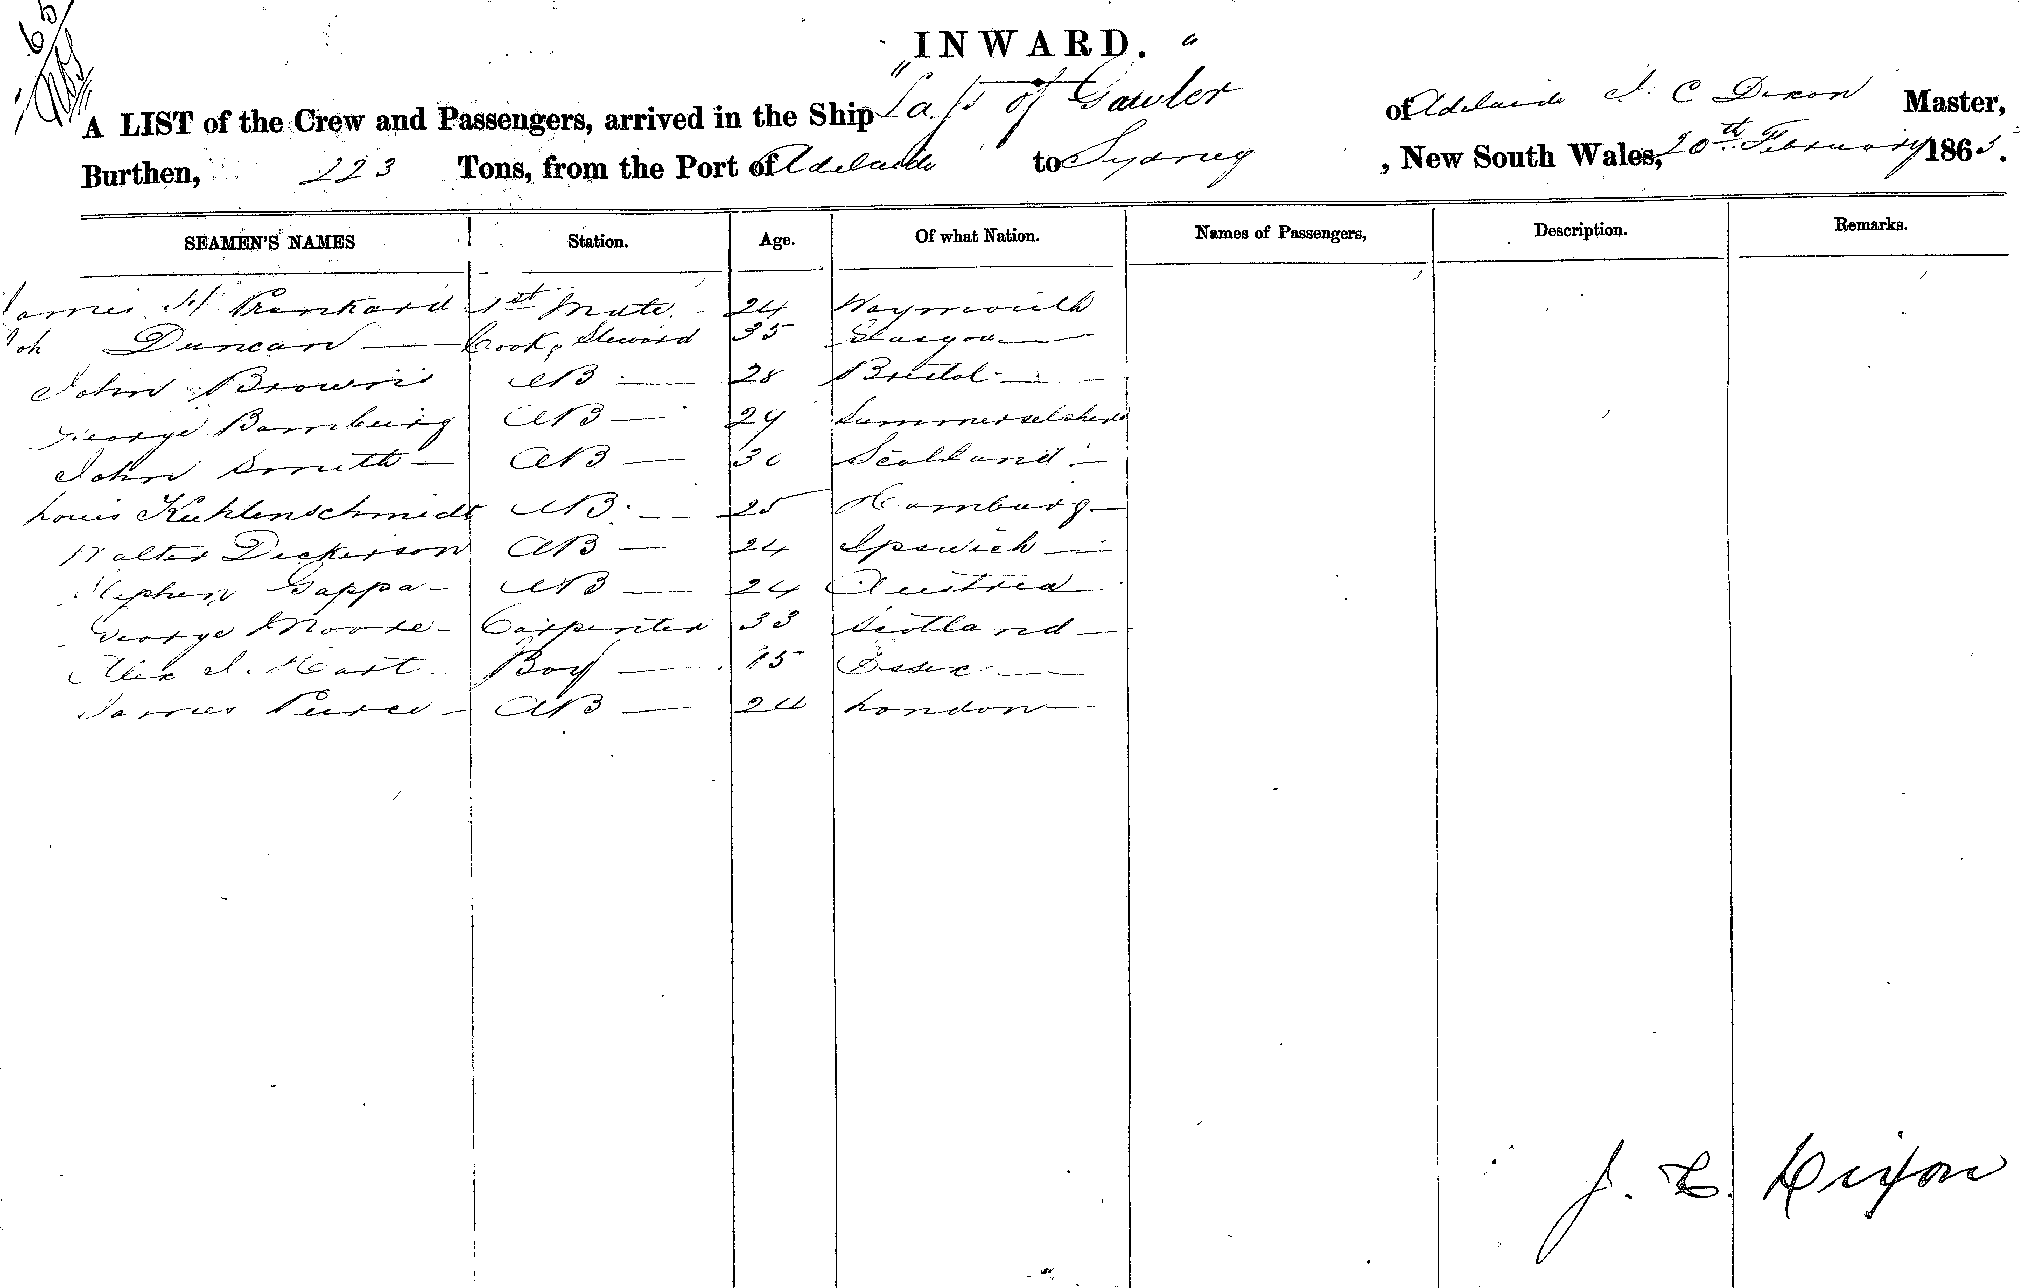 65
INWARD.
A LIST of the Crew and Passengers, arrived in the Ship "Lass of Gawler" of Adelaide J. C Dixon Master,
Burthen, 223 Tons, from the Port of Adelaide to Sydney, New South Wales, 20th February 1865.
SEAMEN'S NAMES Station. Age. Of what Nation. Names of Passengers, Description. Remarks.
James H Prankard 1st Mate 24 Waymouth
Duncan — Cook, Steward 35 Glasgow —
John Browne AB — 28 Bristol —
George Bamburg AB — 29 Summersetshere
John Smith — AB — 30 Scotland —
Louis Kuhlenschmidt AB — 25 Hamburg —
Walter Dickerson AB — 24 Ipswich —
Stephen Gappa — AB — 24 Austria
George Moore — Carpenter 33 Scotland —
Alex J. Hart Boy — 15 Essex —
James Pierce — AB — 24 London —
J. C. Dixon